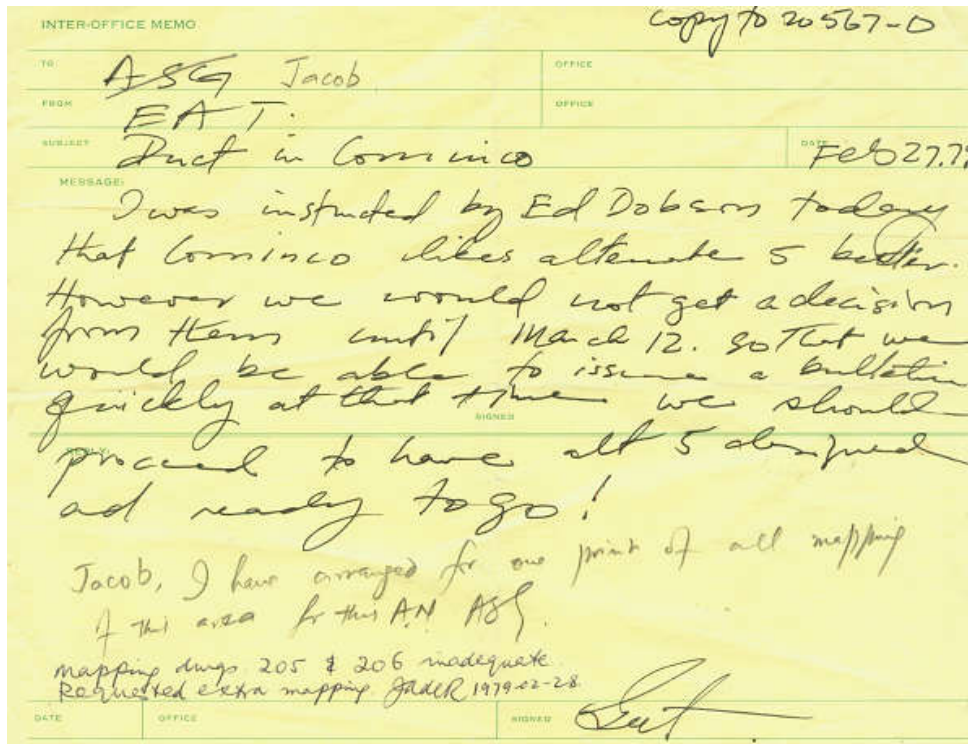 INTER-OFFICE MEMO
copy to 20567-D
TO: ASG Jacob OFFICE
FROM EAT. OFFICE
SUBJECT Duct in Cominco DATE Feb 27.79
MESSAGE:
I was instructed by Ed Dobson today
that Cominco likes alternate 5 better.
However we would not get a decision
from them until March 12. so that we
would be able to issue a bulletin
quickly at that time we should
SIGNED
REPLY:
proceed to have alt 5 designed
ad ready to go!
Jacob, I have arranged for one print of all mapping
of this area for this AM ASG.
mapping dwgs 205 & 206 inadequate
Requested extra mapping 1979-02-28
DATE OFFICE SIGNED